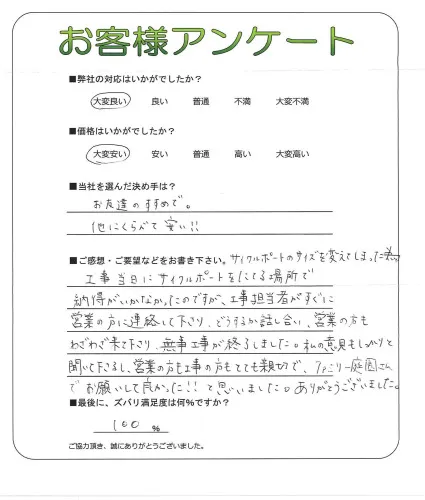 お客様アンケート
■弊社の対応はいかがでしたか？
大変良い 良い 普通 不満 大変不満
■価格はいかがでしたか？
大変安い 安い 普通 高い 大変高い
■当社を選んだ決め手は？
お友達のすすめで。
他にくらべて安い!!
■ご感想・ご要望などをお書き下さい。サイクルポートのサイズを変えてしまった為
工事当日にサイクルポートをたてる場所で
納得がいかなかったのですが、工事担当者がすぐに
営業の方に連絡して下さり、どうするか話し合い、営業の方も
わざわざ来て下さり、無事工事が終了しました。私の意見もしっかりと
聞いて下さるし、営業の方も工事の方もとても親切で、ファミリー庭園さん
でお願いして良かった!!と思いました。ありがとうございました。
■最後に、ズバリ満足度は何％ですか？
100 %
ご協力頂き、誠にありがとうございました。